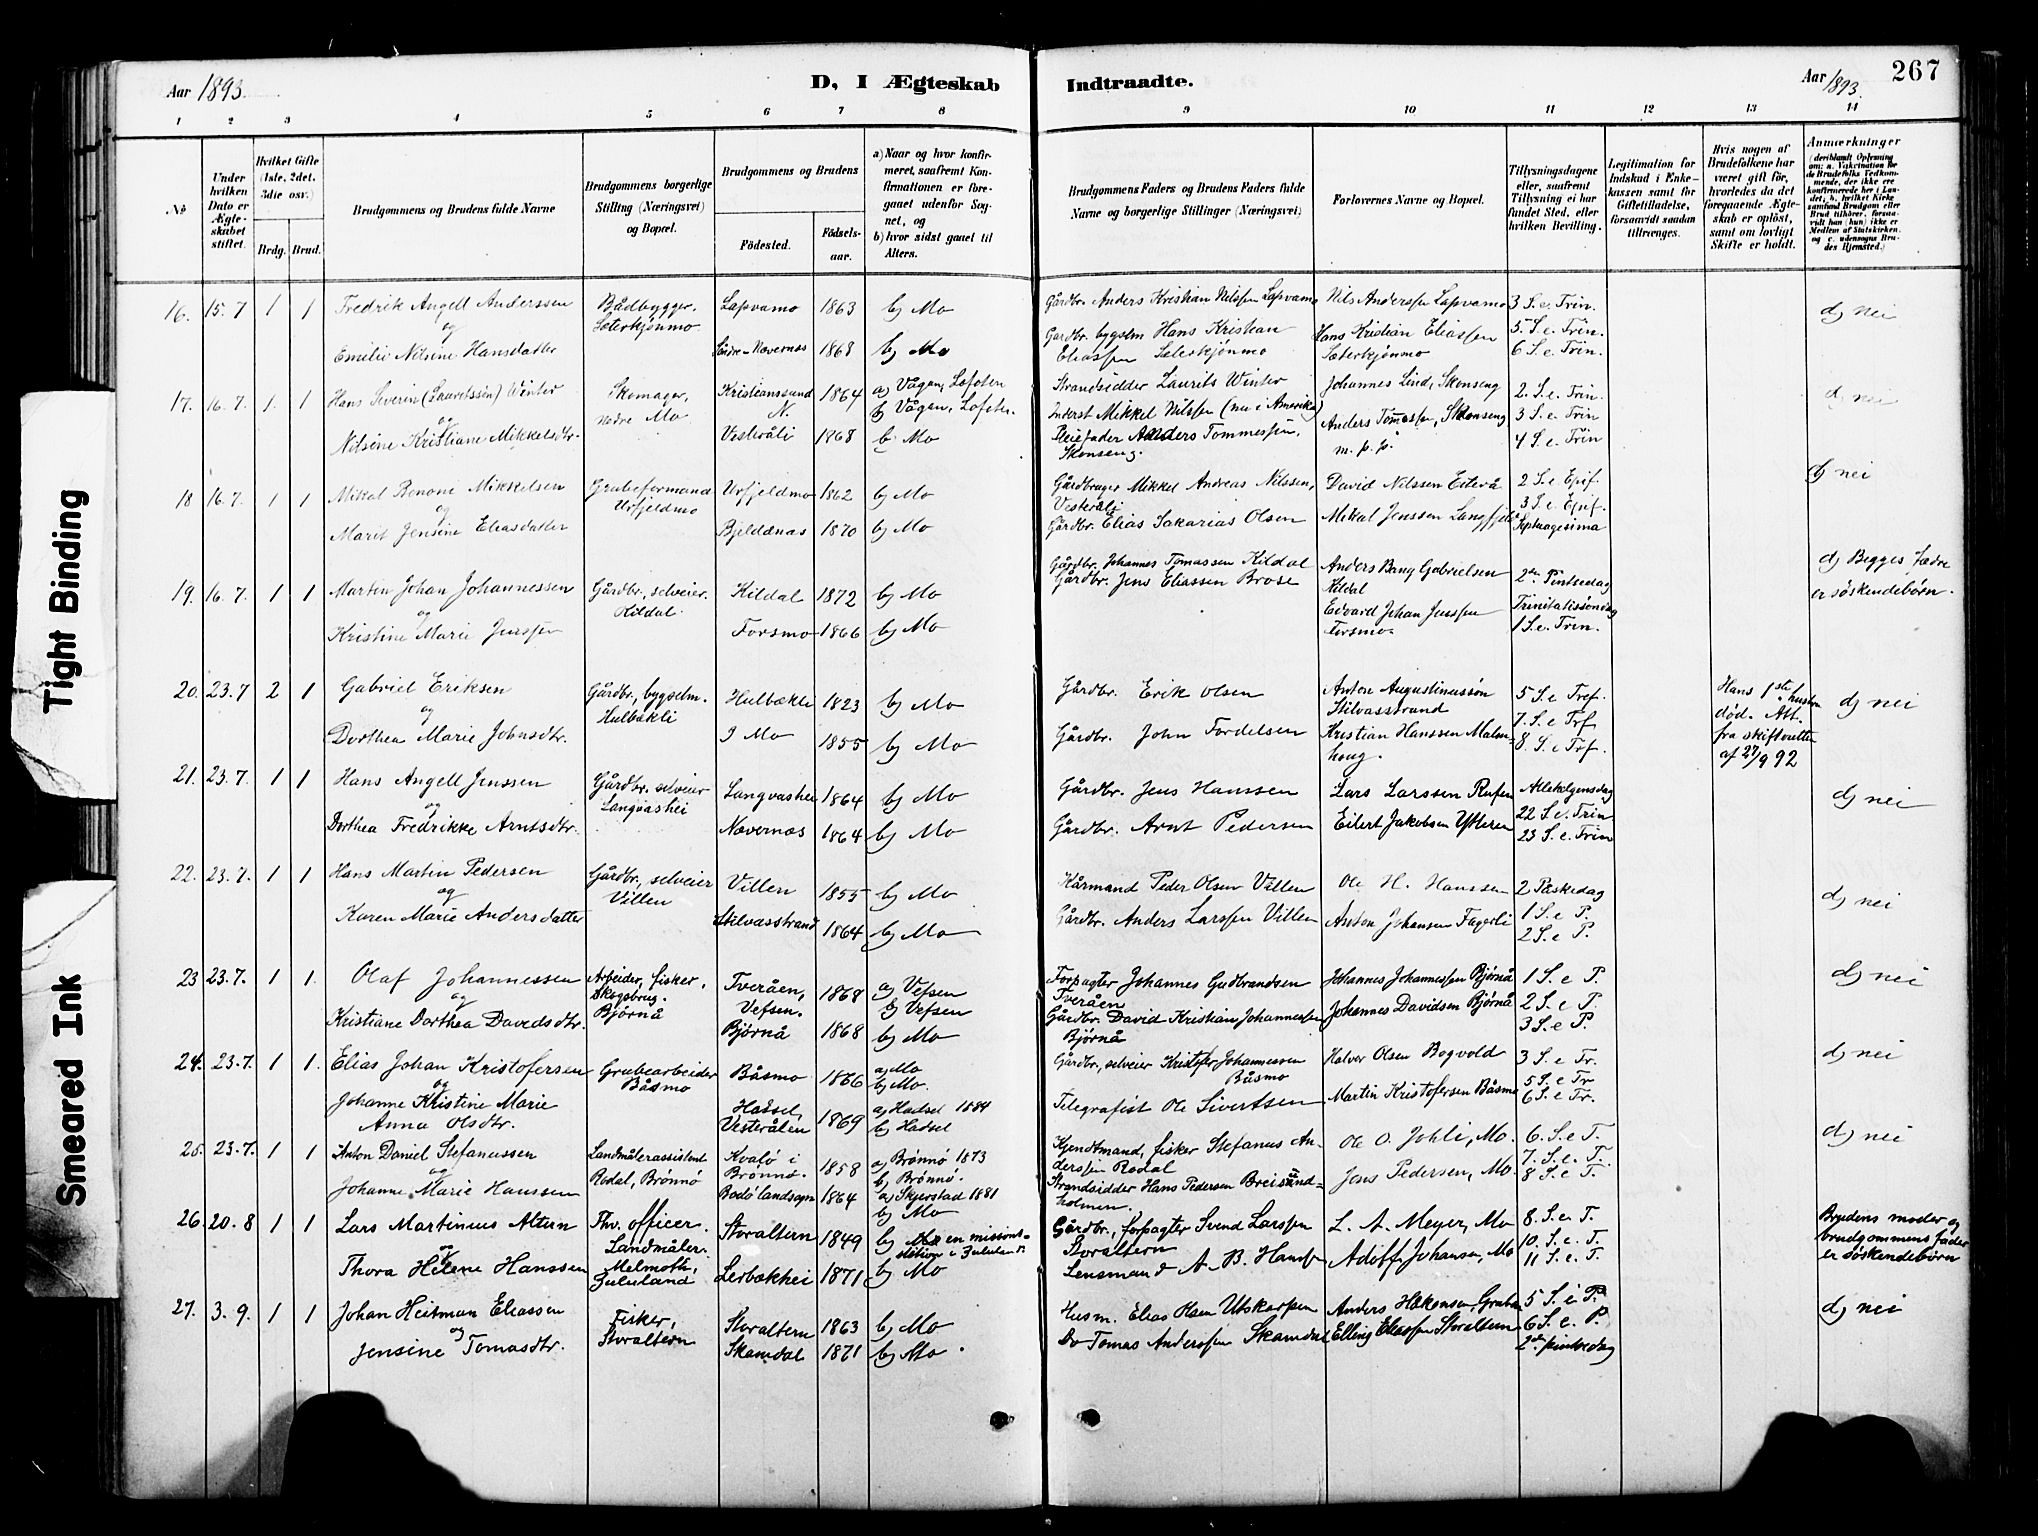 Aar 1893.
D, I Ægteskab Indtraadte.
Aar 1893.
267
1 2 3 4 5 6 7 8 9 10 11 12 13 14
No
Under hvilken Dato er Ægteskabet stiftet.
Hvilket Gifte (1ste, 2det, 3die osv.)
Brdg. Brud.
Brudgommens og Brudens fulde Navne
Brudgommens borgerlige Stilling (Næringsvei) og Bopæl.
Brudgommens og Brudens
Fødested.
Fødselsaar.
a) Naar og hvor konfirmeret, saafremt Konfirmationen er foregaaet udenfor Sognet, og
b) hvor sidst gaaet til Alters.
Brudgommens Faders og Brudens Faders fulde Navne og borgerlige Stillinger (Næringsvei)
Forlovernes Navne og Bopæl.
Tillysningsdagene eller, saafremt Tillysning ei har fundet Sted, efter hvilken Bevilling.
Legitimation for Indskud i Enkekassen samt for Giftetilladelse, forsaavidt saadan tiltrænges.
Hvis nogen af Brudefolkene har været gift før, hvorledes da det foregaaende Ægteskab er opløst, samt om lovligt Skifte er holdt.
Anmærkninger
16. 15.7 1 1 Fredrik Angell Anderssen
og
Emilie Nilsine Hansdatter
Bådbygger, Sæterkjønmo
Lapvamo 1863 b) Mo
Søndre-Nævernæs 1868 b) Mo
Gårdbr. Anders Kristian Nilssen Lapvamo
Gårdbr. bygslm Hans Kristian Eliassen Sæterkjønmo
Nils Anderssen Lapvamo
Hans Kristian Eliassen Sæterkjønmo
3 S. e. Trin.
5 S. e. Trin.
6 S. e. Trin.
d) nei
17. 16.7. 1. 1 Hans Severin (Lauritssen) Winter
og
Nilsine Kristiane Mikkelsdtr.
Skomager, nedre Mo
Kristianssund N. 1864 a) Vågan, Lofoten
b) Vågan, Lofoten.
Vesteråli 1868 b) Mo
Strandsidder Laurits Winter
Inderst Mikkel Nilssen (nu i Amerika)
Pleiefader Anders Tommessen, Skonseng.
Johannes Lind, Skonseng
Anders Tomassen, Skonseng
m. p. p.
2. S. e. Trin.
3 S. e. Trin
4 S. e. Trin
d) nei
18 16.7. 1 1 Mikal Benoni Mikkelsen
og
Marit Jensine Eliasdatter
Grubeformand Urfjeldmo
Urfjeldmo 1862 b) Mo
Bjeldånæs 1870 b) Mo
Gårdbruger Mikkel Andreas Nilssen, Vesteråli
Gårdbr. Elias Sakarias Olsen
David Nilssen Eiterå
Mikal Jenssen Langfjeld
2 S. e. Epif.
3 S. e. Epif.
Septuagesima
d) nei
19. 16.7. 1 1 Martin Johan Johannessen
og
Kristine Marie Jenssen
Gårdbr., selveier. Kildal.
Kildal 1872 b) Mo
Forsmo 1866 b) Mo
Gårdbr. Johannes Tomassen Kildal
Gårdbr. Jens Eliassen Brose
Anders Bang Gabrielsen Kildal
Edvard Johan Jenssen Forsmo.
2den Pintsedag
Trinitatissøndag
1 S. e. Trin.
d) Begges Fædre er søskendebørn.
20. 23.7 2 1 Gabriel Eriksen
og
Dorthea Marie Johnsdtr.
Gårdbr., bygselm. Hulbækli
Hulbækli 1823 b) Mo
I Mo 1855 b) Mo
Gårdbr. Erik Olsen
Gårdbr. John Fordelsen
Anton Augustinussøn Stilvasstrand
Kristian Hanssen Malmhaug.
5 S. e Tref.
7. S. e Trf
8. S. e Trf.
Hans 1ste hustru død. Att. fra skifteretten af 27/9 92
d) nei
21. 23.7. 1 1 Hans Angell Jenssen
og
Dorthea Fredrikke Arntsdtr.
Gårdbr. selveier Langvashei
Langvashei 1864 b) Mo
Nævernæs 1864 b) Mo
Gårdbr. Jens Hanssen
Gårdbr. Arnt Pedersen
Lars Larssen Rufen
Eilert Jakobsen Ytteren
Allehelgensdag
22 S. e. Trin
23 S. e. Trin
d) nei
22. 23.7. 1 1 Hans Martin Pedersen
og
Karen Marie Andersdatter
Gårdbr., selveier Villen
Villen 1855 b) Mo
Stilvasstrand 1864 b) Mo
Kårmand Peder Olsen Villen
Gårdbr. Anders Larssen Villen
Ole H. Hanssen
Anton Johansen Fagerli
2 Påskedag
1 S. e P.
2 S. e P.
d) nei
23 23.7. 1 1. Olaf Johannessen
og
Kristiane Dorthea Davidsdtr.
Arbeider, fisker, Skogsbrug. Bjørnå
Tveråen, Vefsen. 1868 a) Vefsen
b) Vefsen
Bjørnå 1868 b) Mo
Forpagter Johannes Gudbrandsen Tveråen
Gårdbr. David Kristian Johannessen Bjørnå
Johannes Johannessen Bjørnå
Johannes Davidsen Bjørnå
1 S. e P.
2 S. e P.
3 S. e P.
d) nei
24. 23.7. 1 1. Elias Johan Kristofersen
og
Johanne Kristine Marie Anna Olsdtr.
Grubearbeider Båsmo
Båsmo 1866 a) Mo
b) Mo.
Hadsel, Vesterålen 1869 a) Hadsel 1884
b) Hadsel
Gårdbr., selveier Kristofer Johannessen Båsmo
Telegrafist Ole Sivertsen
Halvor Olsen Bogvold
Martin Kristofersen Båsmo
3 S. e Tr.
5 S. e Tr
6 S. e Tr.
d) nei
25. 23.7. 1 1 Anton Daniel Stefanussen
og
Johanne Marie Hanssen
Landmålerassistent Rodal, Brønnø
Kvalø i Brønnø. 1858 a) Brønnø 1873
b) Brønnø.
Bodø landsogn 1864 a) Skjerstad 1881
b) Mo
Kjendtmand, fisker Stefanus Anderssen Rodal
Strandsidder Hans Pedersen Breisundholmen.
Ole O. Johli, Mo.
Jens Pedersen, Mo.
6. S. e T.
7. S. e. T.
8 S. e T.
d) nei
26. 20.8 1 1 Lars Martinius Altern
og
Thora Helene Hanssen
Thv. officer. Landmåler. Melmoth, Zululand
Storaltern 1849 b) en missionsstation i Zululand.
Lerbækhei 1871 b) Mo
Gårdbr., forpagter Svend Larssen Storaltern
Lensmand A. B. Hanssen
L. A. Meyer, Mo
Adolf Johansen, Mo
8 S. e T.
10. S. e. T.
11 S. e. T.
Brudens moder og brudgommens fader er søskendebørn
27. 3.9. 1 1 Johan Heitman Eliassen
og
Jensine Tomasdtr.
Fisker, Storaltern
Storaltern 1863 b) Mo
Skamdal 1871 b) Mo.
Husm. Elias Utskarpen
Do Tomas Anderssen Skamdal
Anders Håkonsen, Gruben
Elling Eliassen Storaltern
5 S. e P.
6 S. e. P.
2den pintsedag
d) nei
Tight Binding
Smeared Ink